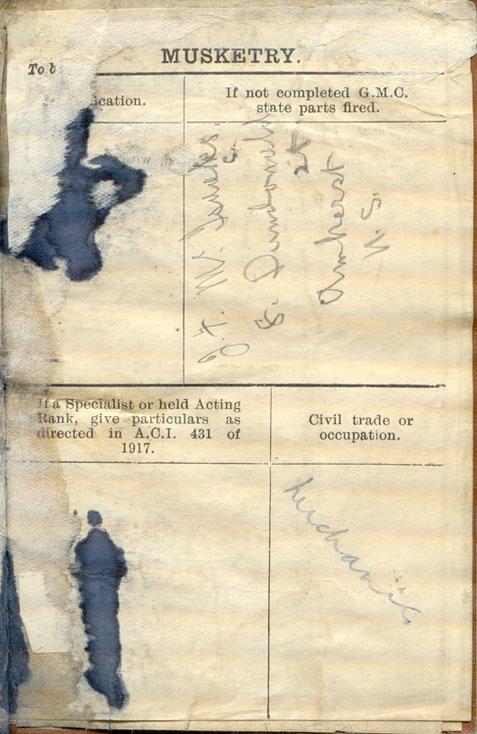 MUSKETRY.
To b
ication.
If not completed G.M.C.
state parts fired.
8. Dundonald
St
Amherst
N. S.
If a Specialist or held Acting
Rank, give particulars as
directed in A.C.I. 431 of
1917.
Civil trade or
occupation.
Mechanic